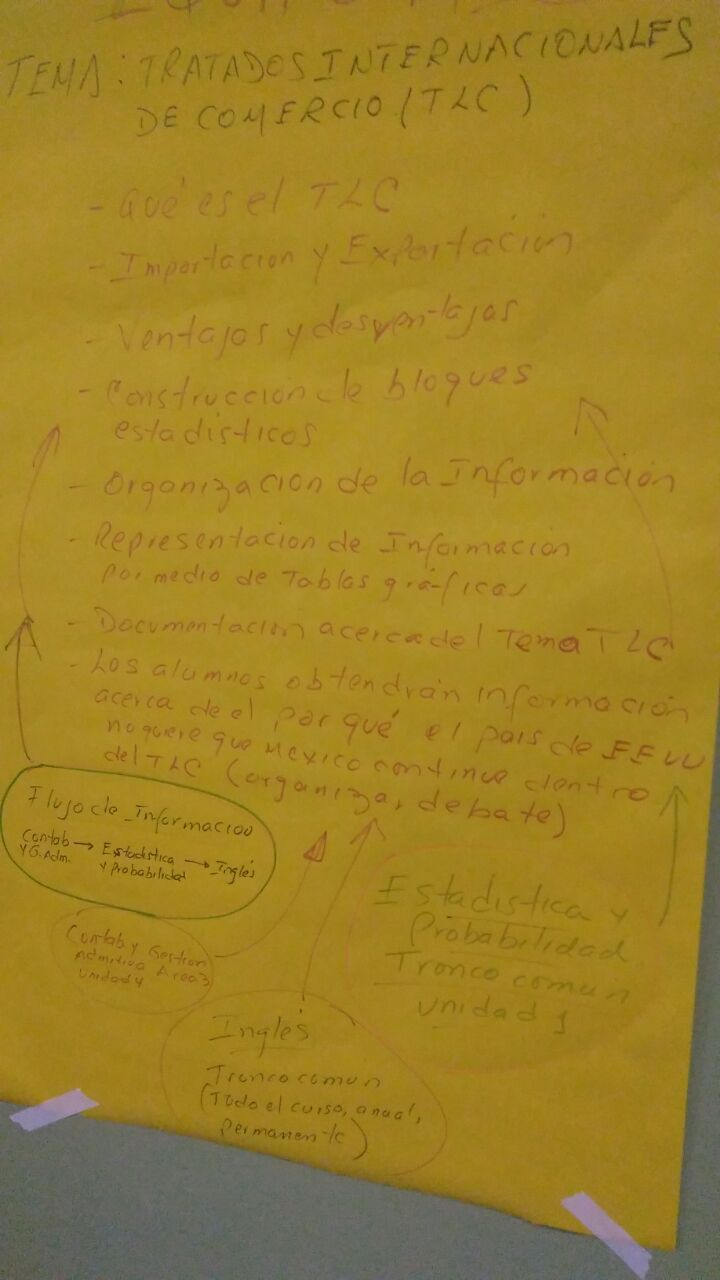 TEMA: TRATADOS INTERNACIONALES
DE COMERCIO (TLC)
- Qué es el TLC
- Importacion y Exportación
- Ventajas y desventajas
- Construcción de bloques
estadísticos
- Organización de la Información
- Representacion de Información
por medio de Tablas gráficas
- Documentación acerca del Tema TLC
- Los alumnos obtendrán información
acerca de el por qué el país de EEUU
no quiere que México continue dentro
del TLC (organiza, debate)
Flujo de Información
Contab → Estadística → Inglés
y G. Adm. y Probabilidad
Contab y Gestion
Admitiva Area3
unidad 4
Estadística y
Probabilidad
Tronco comun
unidad 1
Inglés
Tronco comun
(Todo el curso, anual,
permanente)